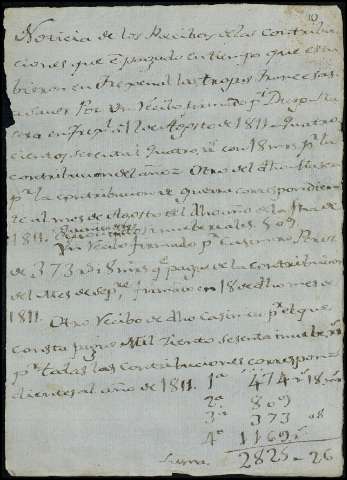 10
Noticia de los Recibos de las Contribu
ciones que é pagado en tiempo que estu
bieron en Frejenal las tropas Francesas
a saver Por Un Recibo firmado pr
en Frejl á 12 de Agosto de 1811 quatro
cientos setenta i quatro rs con 18 mrs pr la
contribucion del año Otro del dho
pr la contribucion de guerra correspondien
te al mes de Agosto del dho año de
1811. ochocientos nuebe reales 809
Un Recibo firmado pr Casimiro Peres
de 373 rs i 8 mrs qe pague de la Contribucion
del Mes de Sepre firmado en 18 de dho mes de
1811.
Otro Recibo de dho Casimiro pr el que
consta pague Mil Ciento sesenta i nuebe rs
pr todas las Contribuciones correspon
dientes al año de 1811.
1a 474 rs 18 mrs
2a 809
3a 373 08
4a 1169
Suma 2825 - 26